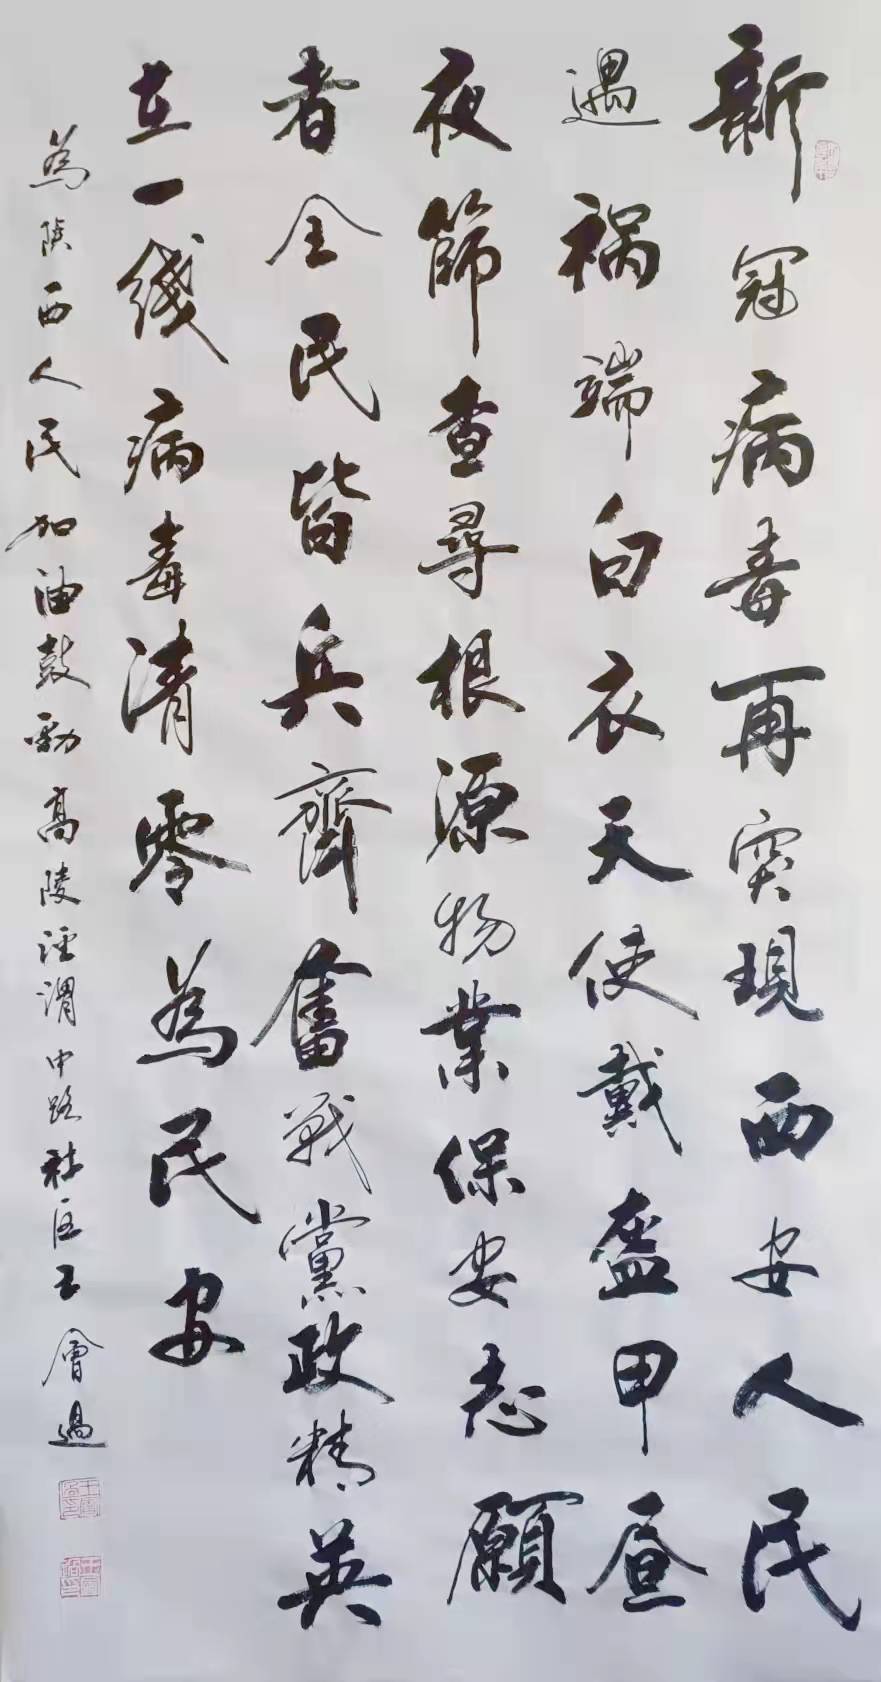 新冠病毒再突現西安人民
遇祸端白衣天使戴盔甲昼
夜篩查尋根源物業保安志願
者全民皆兵齊奮戰黨政精英
在一线病毒清零為民安
為陕西人民加油鼓勁高陵泾渭中路社区王會過